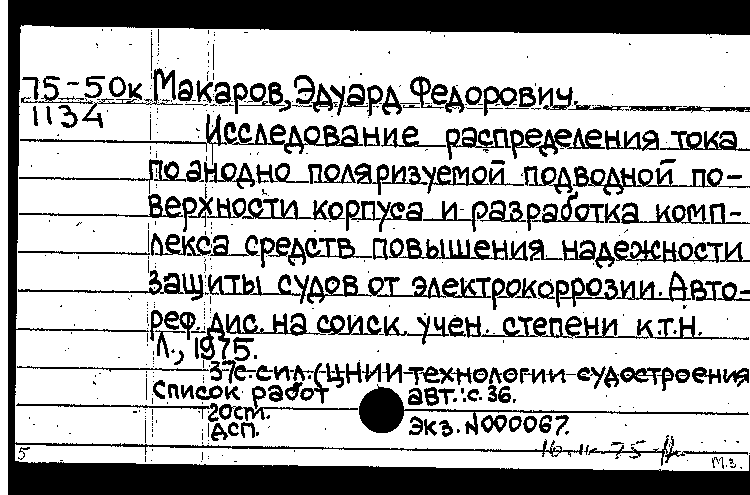 75-50к Макаров, Эдуард Федорович.
1134
Исследование распределения тока
по анодно поляризуемой подводной по-
верхности корпуса и разработка комп-
лекса средств повышения надежности
защиты судов от электрокоррозии. Авто-
реф. дис. на соиск. учен. степени к.т.н.
Л., 1975.
37с. с ил. (ЦНИИ технологии судостроения
Список работ авт.: с. 36.
20см.
ДСП. Экз. N000067.
5
М.З.